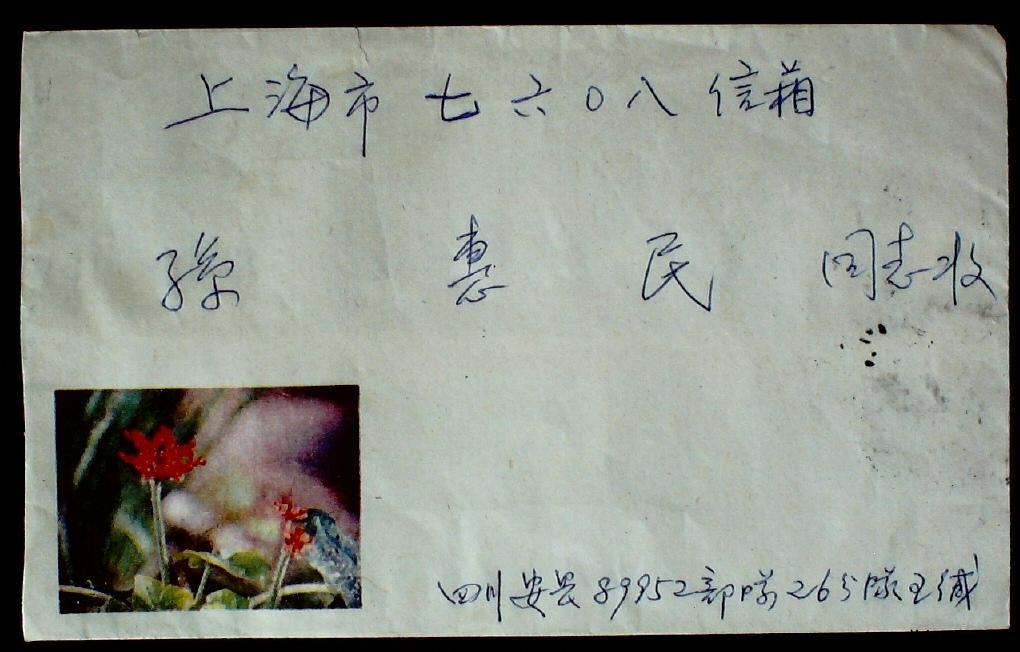 上海市七六〇八信箱
孫惠民同志收
四川安县89952部隊26分隊王缄